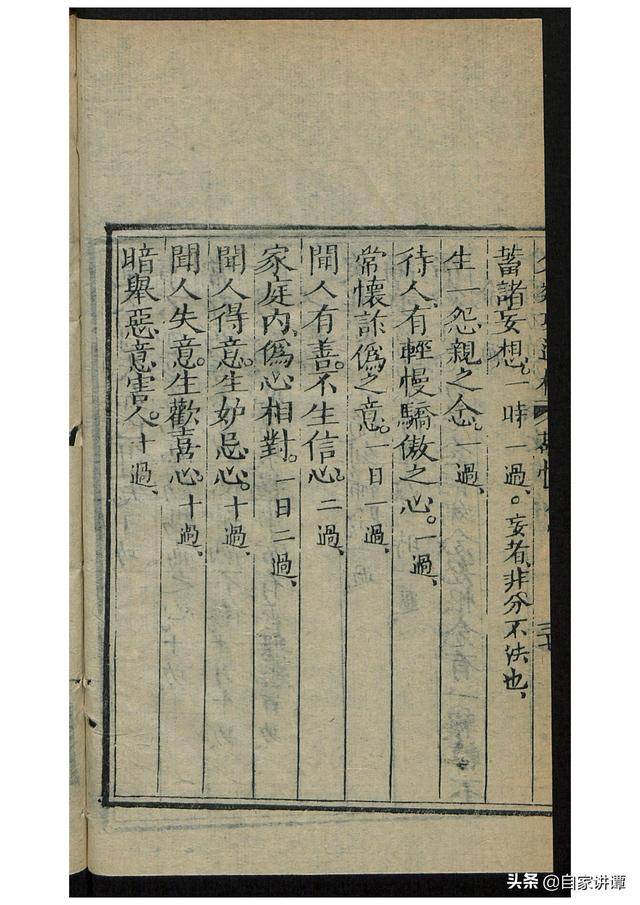 蓄諸妄想。一時一過。妄者、非分不法也、
生一怨親之念。一過、
待人有輕慢驕傲之心。一過、
常懷詐偽之意。一日一過、
聞人有善。不生信心。二過、
家庭內、偽心相對。一日二過、
聞人得意。生妒忌心。十過、
聞人失意。生歡喜心。十過、
暗舉惡意害人。十過、
头条 @自家讲谭